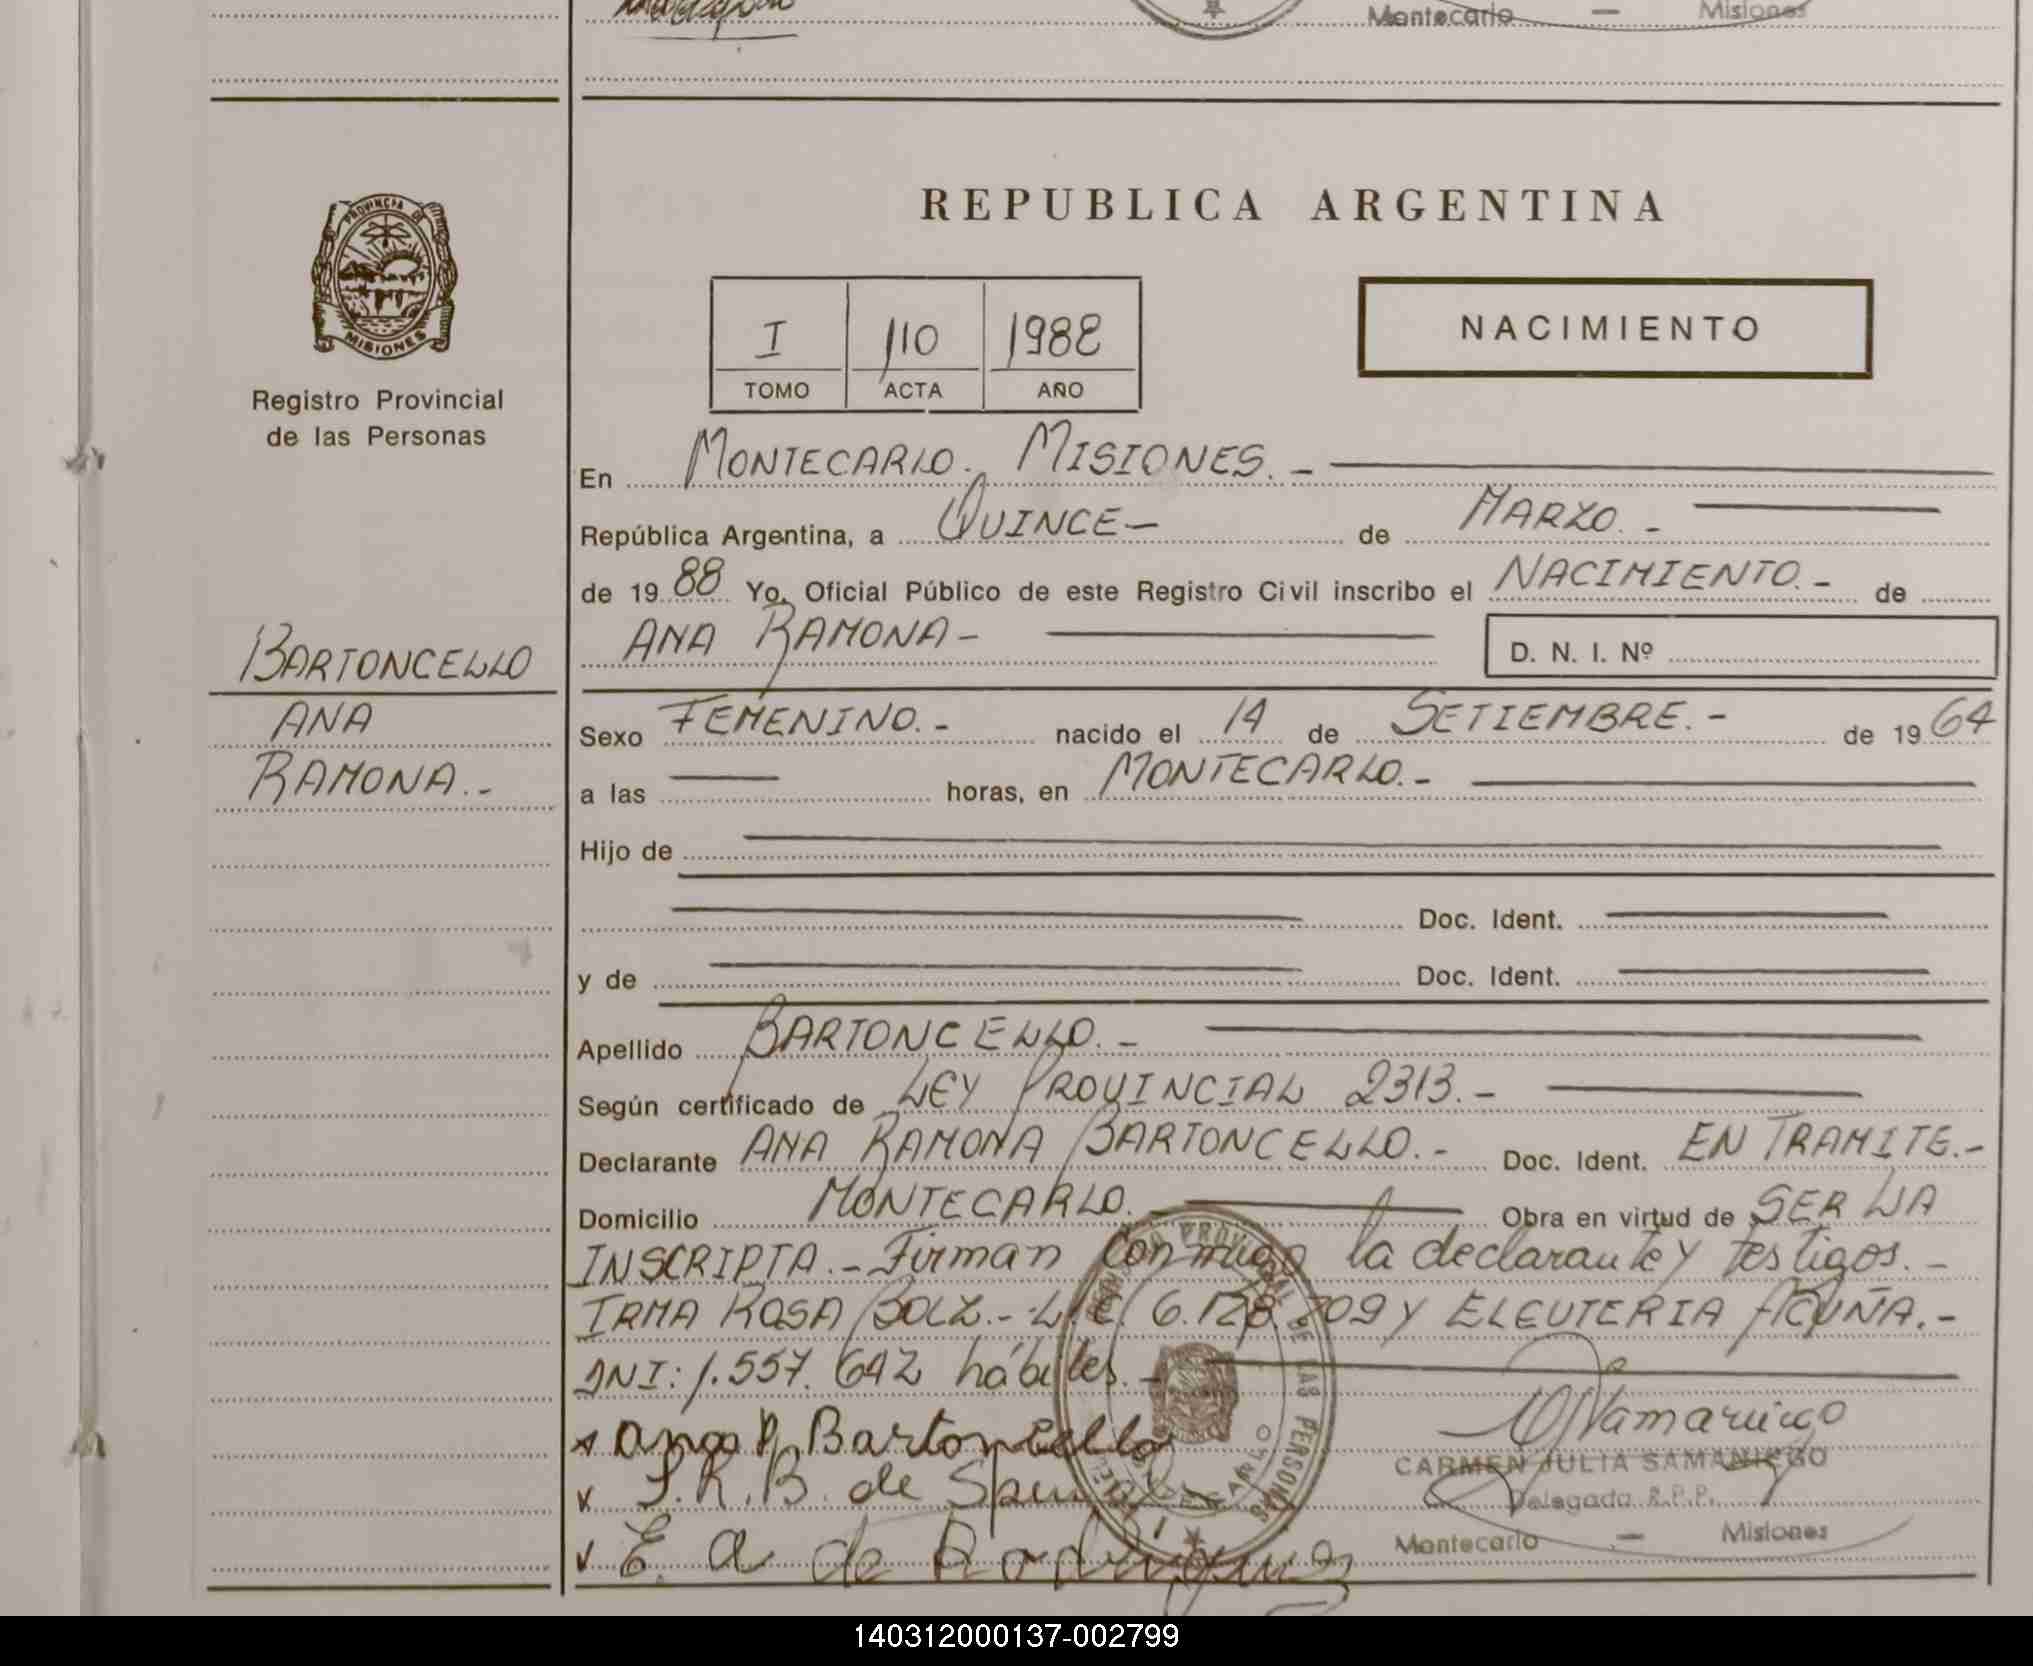 Montecarlo — Misiones
PROVINCIA DE
MISIONES
Registro Provincial
de las Personas
REPUBLICA ARGENTINA
I 110 1988
TOMO ACTA AÑO
NACIMIENTO
En MONTECARLO. MISIONES. -
República Argentina, a QUINCE - de MARZO. -
de 19 88 Yo, Oficial Público de este Registro Civil inscribo el NACIMIENTO. - de
ANA RAMONA -
D. N. I. Nº
BARTONCELLO
ANA
RAMONA. -
Sexo FEMENINO. - nacido el 14 de SETIEMBRE. - de 19 64
a las — horas, en MONTECARLO. -
Hijo de
Doc. Ident.
y de Doc. Ident.
Apellido BARTONCELLO. -
Según certificado de LEY PROVINCIAL 2313. -
Declarante ANA RAMONA BARTONCELLO. - Doc. Ident. EN TRAMITE. -
Domicilio MONTECARLO. Obra en virtud de SER LA
INSCRIPTA. - Firman conmigo la declarante y testigos. -
IRMA ROSA BOLZ. - L.C. 6.128.209 y ELEUTERIA ACUÑA. -
DNI: 1.557.642 hábiles. -
Ana R Bartoncello
I. R. B. de
CARMEN JULIA SAMANIEGO
Delegada R.P.P.
E. A de Rodriguez
Montecarlo — Misiones
140312000137-002799